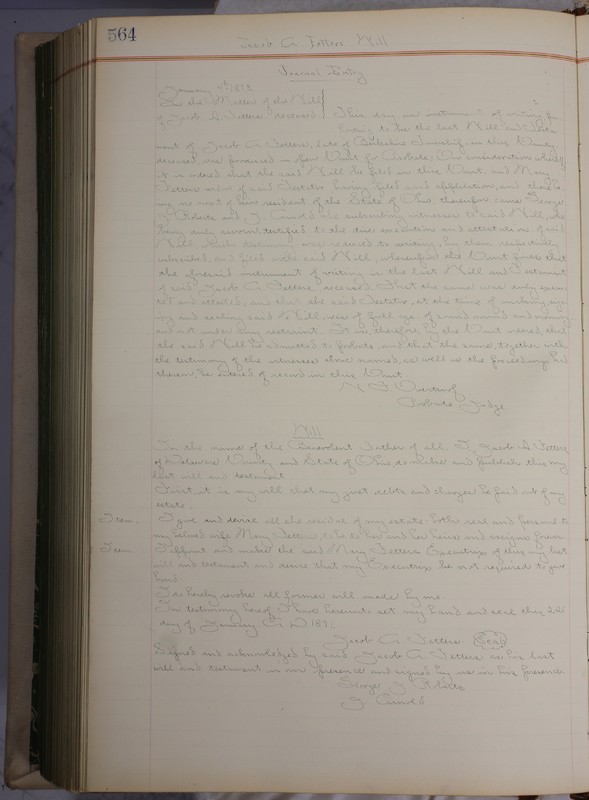 564
Jacob A. Fetters Will
Journal Entry
January 4th 189
In the Matter of the Will
of Jacob A. Fetters deceased This day an instrument of writing pur
porting to be the last Will and Testa
ment of Jacob A Fetters, late of Township, in this County
deceased, was produced in open Court for Probate; On consideration whereof
it is ordered that the said Will be filed in this Court, and Mary
Fetters widow of said Testator having filed said application, and there be
ing no next of kin resident of the State of Ohio, therefore came George
J Roberts and J. the subscribing witnesses to said Will, who
being duly sworn, testified to the due execution and attestation of said
Will, which testimony was reduced to writing, by them respectively
subscribed, and filed with said Will, whereupon the Court finds that
the aforesaid instrument of writing is the last Will and Testament
of said Jacob A Fetters deceased that the same was duly execu
ted and attested, and that the said Testator, at the time of making, sign
ing and sealing said Will, was of full age of sound mind and memory
and not under any restraint. It is, therefore, by the Court ordered, that
the said Will be admitted to probate, and that the same, together with
the testimony of the witnesses above named, as well as the proceedings had
therein, be entered of record in this Court
Probate Judge
Will
In the name of the Benevolent Father of all. I, Jacob A Fetters
of Delaware County and State of Ohio do make and publish this my
last will and testament
First, it is my will that my just debts and charges be paid out of my
estate.
Item. I give and devise all the residue of my estate both real and personal to
my beloved wife Mary Fetters, to be to her and her heirs and assigns forever
Item I appoint and make the said Mary Fetters Executrix of this my last
will and testament and desire that my Executrix be not required to give
bond.
I do hereby revoke all former will made by me.
In testimony hereof I have hereunto set my hand and seal this 22
day of January A D 189
Jacob A Fetters Seal
Signed and acknowledged by said Jacob A Fetters as his last
will and testament in our presence and signed by us in his presence
George J Roberts
J